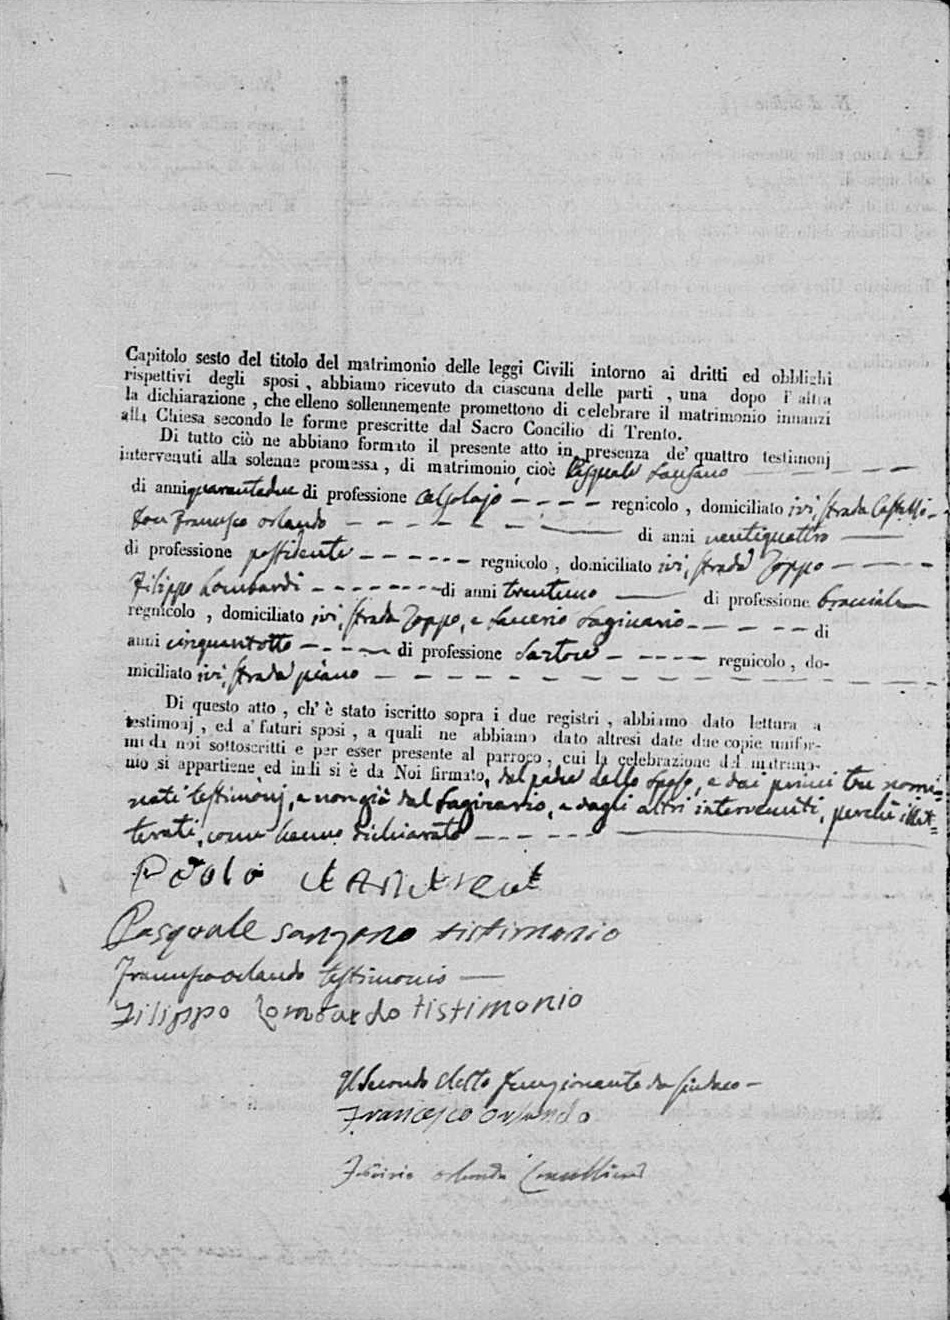 Capitolo sesto del titolo del matrimonio delle leggi Civili intorno ai dritti ed obblighi
rispettivi degli sposi , abbiamo ricevuto da ciascuna delle parti , una dopo l' altra
la dichiarazione , che elleno sollennemente promettono di celebrare il matrimonio innanzi
alla Chiesa secondo le forme prescritte dal Sacro Concilio di Trento.
Di tutto ciò ne abbiano formato il presente atto in presenza de' quattro testimonj
intervenuti alla solenne promessa , di matrimonio cioè Pasquale Sanzano
di anni quarantadue di professione calzolajo regnicolo , domiciliato ivi, strada Castello
Don Francesco Orlando di anni ventiquattro
di professione possidente regnicolo , domiciliato ivi, strada Zoppo
Filippo Lombardi di anni trentuno di professione bracciale
regnicolo , domiciliato ivi, strada Zoppo, e Saverio Saginario di
anni cinquantotto di professione Sartore regnicolo , do-
miciliato ivi, strada piano
Di questo atto , ch' è stato iscritto sopra i due registri , abbiamo dato lettura a
testimonj , ed a' futuri sposi , a quali ne abbiamo dato altresi date due copie unifor-
mi da noi sottoscritti e per esser presente al parroco , cui la celebrazione del matrimo-
nio si appartiene ed indi si è da Noi firmato, dal padre dello sposo, e dai primi tre nomi=
nati testimonj, e non già dal Saginario, e dagli altri intervenuti, perchè illet=
terati, come hanno dichiarato
Paolo
Pasquale sanzano tistimonio
Francesco orlando testimonio
Filippo Lombardo tistimonio
Il Secondo eletto funzionante da Sindaco
Francesco Orlando
orlando Cancelliere